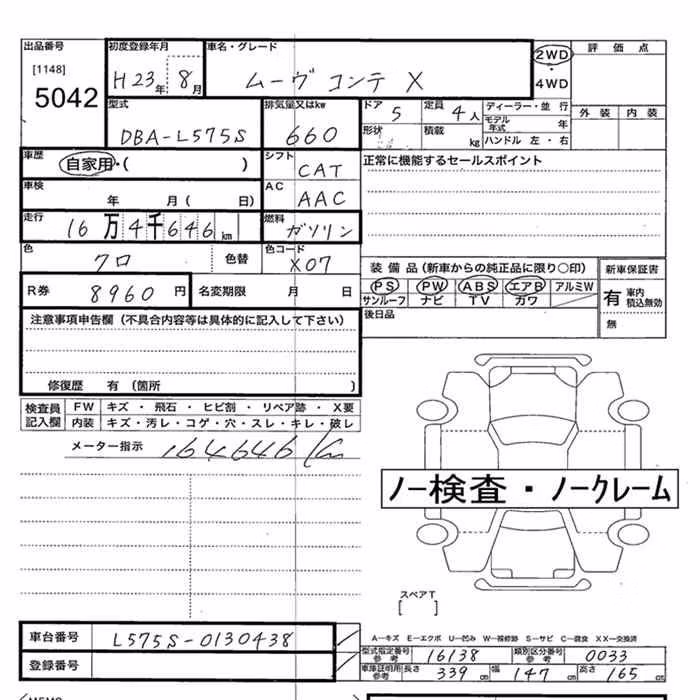 出品番号 初度登録年月 車名・グレード 2WD 評価点
[1148] 5042 H23年 8月 ムーヴ コンテ X ・ 4WD 外装 内装
型式 排気量又はkw ドア 5 定員 4人 ディーラー・並行
DBA-L575S 660 形状 積載 kg モデル年式 年
ハンドル 左・右
車歴 自家用・( ) シフト CAT 正常に機能するセールスポイント
車検 年 月( 日) AC AAC
走行 16万4千646km 燃料 ガソリン
色 クロ 色替 色コード X07 装備品(新車からの純正品に限り○印) 新車保証書
R券 8960円 名変期限 月 日 PS PW ABS エアB アルミW 有 車内積込無効
サンルーフ ナビ TV カワ
注意事項申告欄(不具合内容等は具体的に記入して下さい) 後日品 無
修復歴 有(箇所 )
検査員記入欄 FW キズ・飛石・ヒビ割・リペア跡・X要
内装 キズ・汚レ・コゲ・穴・スレ・キレ・破レ
メーター指示 164646 Km
ノー検査・ノークレーム
スペアT
[ ]
車台番号 L575S-0130438 A-キズ E-エクボ U-凹み W-補修跡 S-サビ C-腐食 XX-交換済
型式指定番号参考 16138 類別区分番号参考 0033
登録番号 車庫証明用参考 長さ 339cm 幅 147cm 高さ 165cm
MEMO